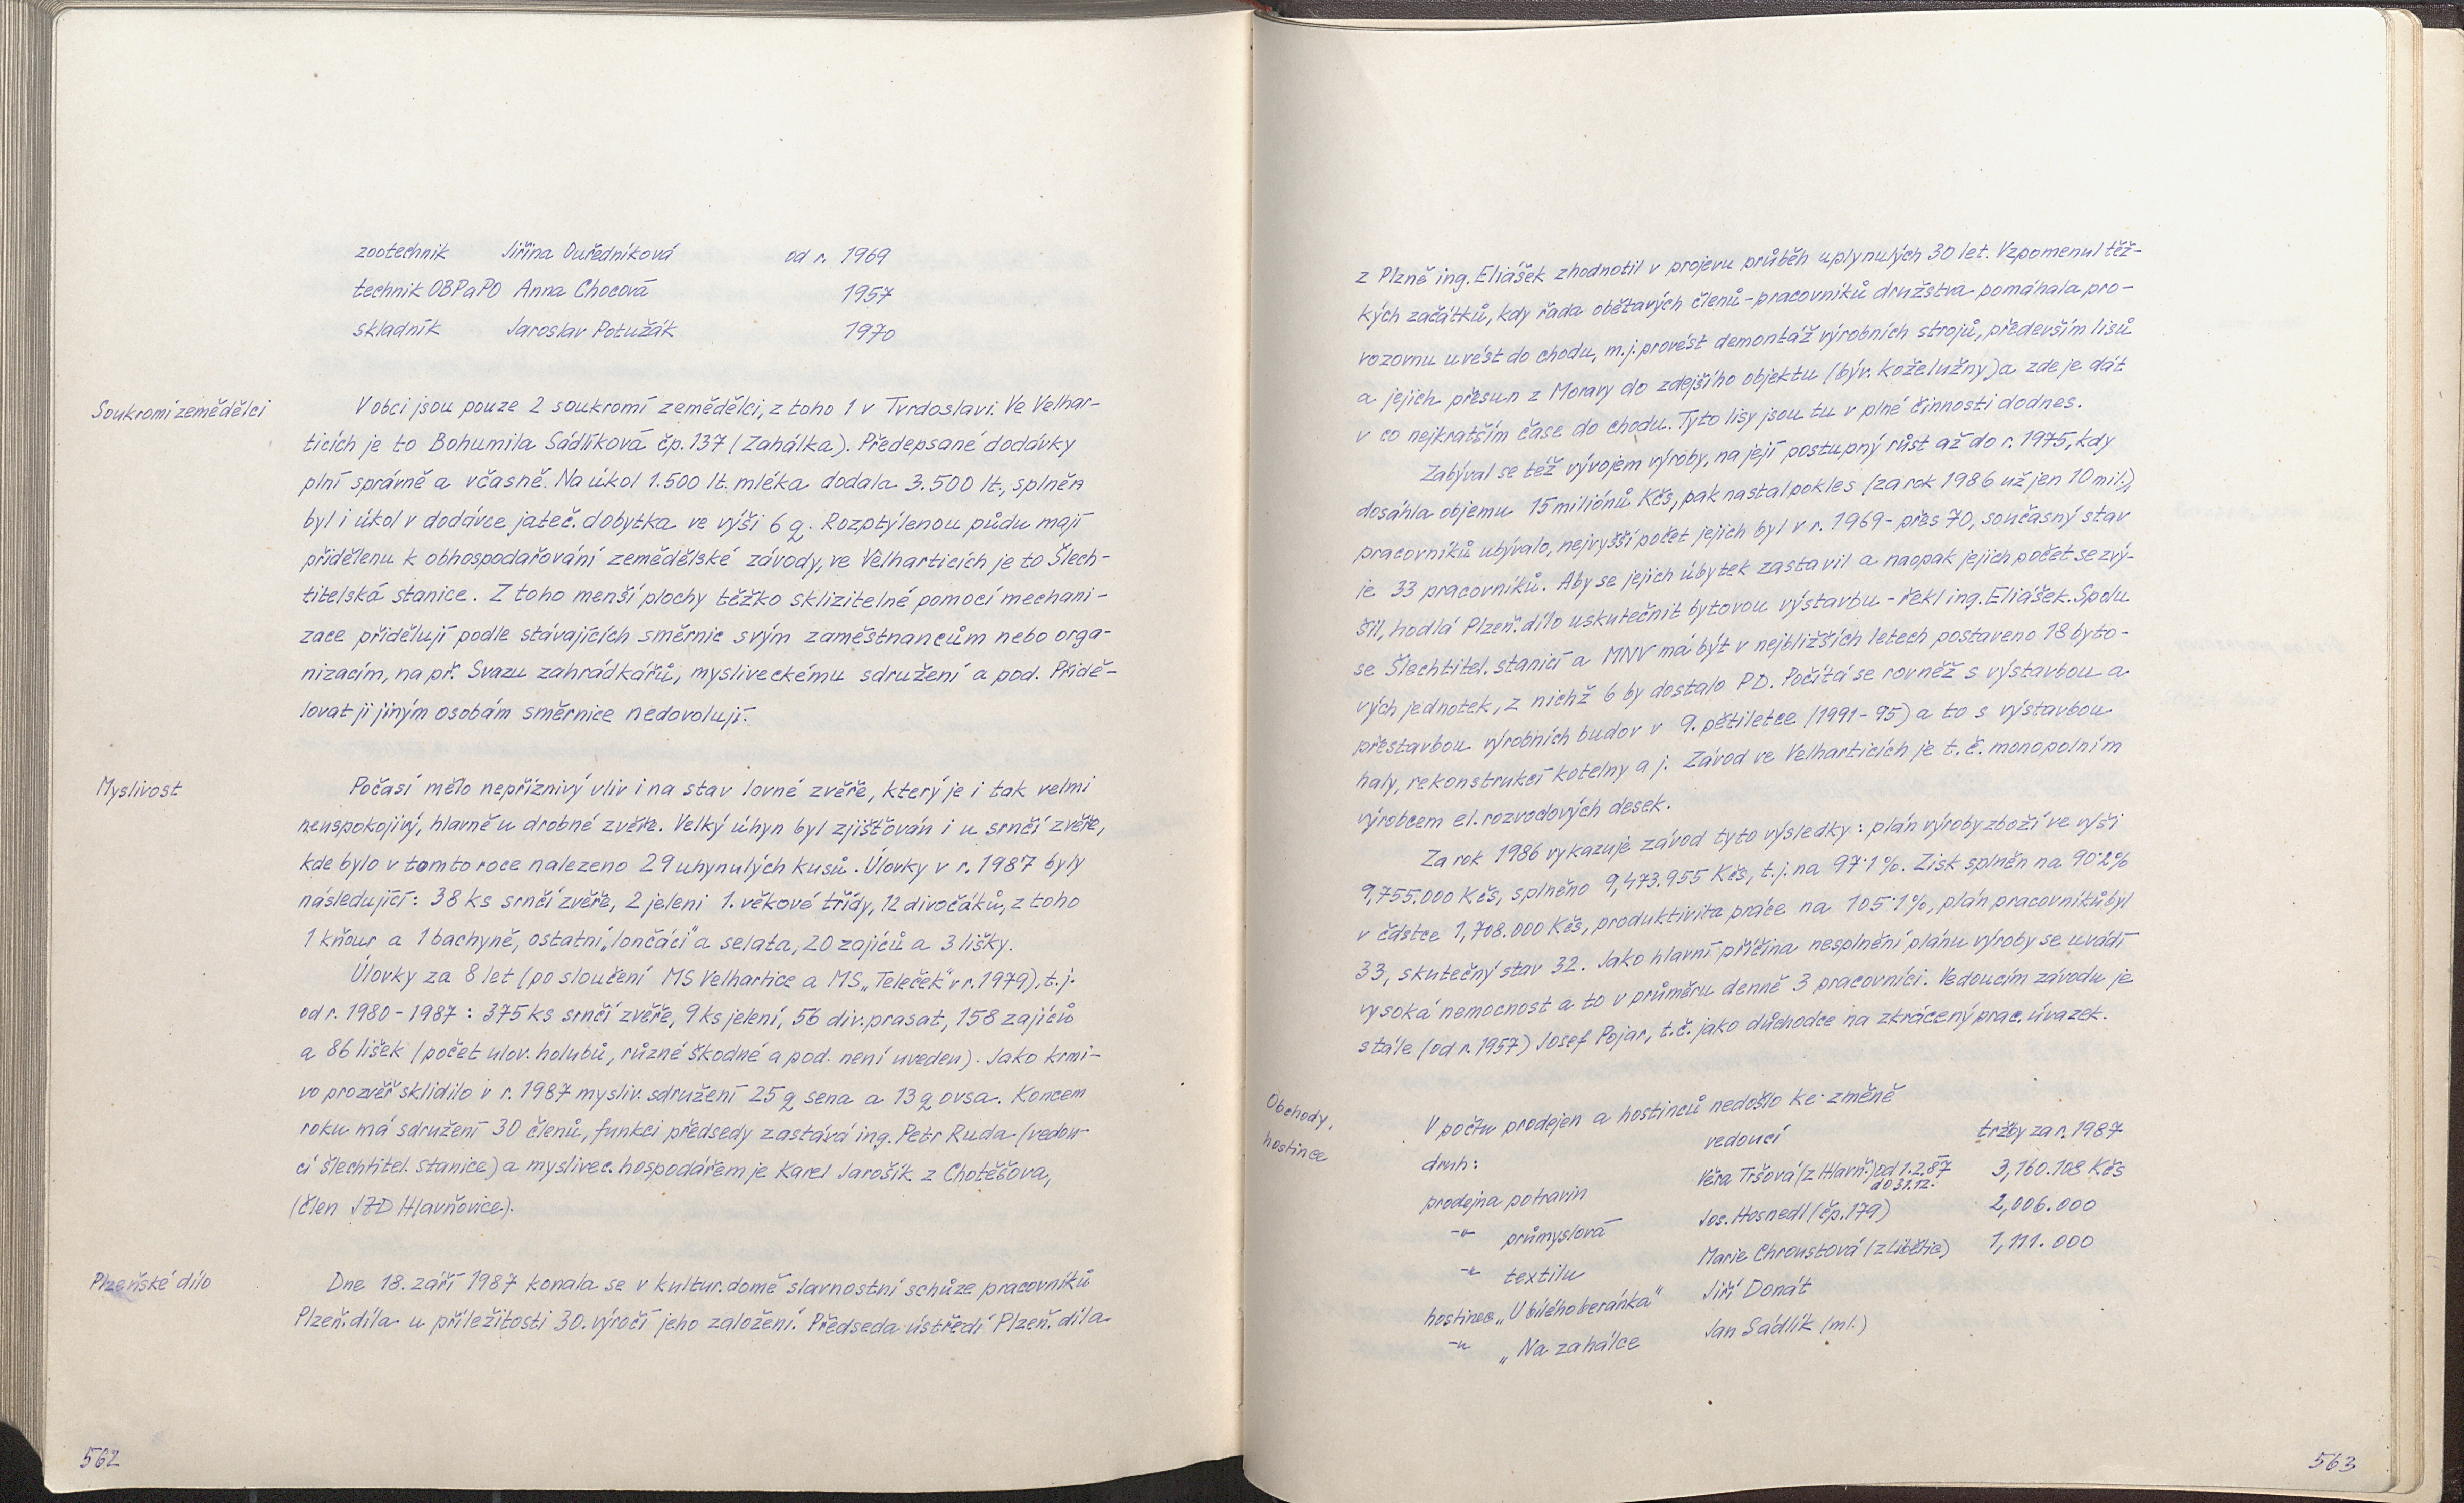 zootechnik Jiřina Duředníková od r. 1969
technik OBPaPO Anna Chocová 1957
skladník Jaroslav Potužák 1970
Soukromí zemědělci
V obci jsou pouze 2 soukromí zemědělci, z toho 1 v Tvrdoslavi. Ve Velhar-
ticích je to Bohumila Sádlíková čp. 137 (Zahálka). Předepsané dodávky
plní správně a včasně. Na úkol 1.500 lt. mléka dodala 3.500 lt., splněn
byl i úkol v dodávce jateč. dobytka ve výši 6 q. Rozptýlenou půdu mají
přidělenu k obhospodařování zemědělské závody, ve Velharticích je to Šlech-
titelská stanice. Z toho menší plochy těžko sklizitelné pomocí mechani-
zace přidělují podle stávajících směrnic svým zaměstnancům nebo orga-
nizacím, na př. Svazu zahrádkářů, mysliveckému sdružení a pod. Přidě-
lovat ji jiným osobám směrnice nedovolují.
Myslivost
Počasí mělo nepříznivý vliv i na stav lovné zvěře, který je i tak velmi
neuspokojivý, hlavně u drobné zvěře. Velký úhyn byl zjišťován i u srnčí zvěře,
kde bylo v tomto roce nalezeno 29 uhynulých kusů. Úlovky v r. 1987 byly
následující: 38 ks srnčí zvěře, 2 jeleni 1. věkové třídy, 12 divočáků, z toho
1 kňour a 1 bachyně, ostatní „lončáci" a selata, 20 zajíců a 3 lišky.
Úlovky za 8 let (po sloučení MS Velhartice a MS „Teleček" v r. 1979), t.j.
od r. 1980 - 1987 : 375 ks srnčí zvěře, 9 ks jelení, 56 div. prasat, 158 zajíců
a 86 lišek (počet ulov. holubů, různé škodné a pod. není uveden). Jako krmi-
vo pro zvěř sklidilo v r. 1987 mysliv. sdružení 25 q sena a 13 q ovsa. Koncem
roku má sdružení 30 členů, funkci předsedy zastává ing. Petr Ruda (vedou-
cí šlechtitel. stanice) a myslivec. hospodářem je Karel Jarošík z Chotěšova,
(člen JZD Hlavňovice).
Plzeňské dílo
Dne 18. září 1987 konala se v kultur. domě slavnostní schůze pracovníků
Plzeň. díla u příležitosti 30. výročí jeho založení. Předseda ústředí Plzeň. díla
562
z Plzně ing. Eliášek zhodnotil v projevu průběh uplynulých 30 let. Vzpomenul těž-
kých začátků, kdy řada obětavých členů - pracovníků družstva pomáhala pro-
vozovnu uvést do chodu, m.j. provést demontáž výrobních strojů, především lisů
a jejich přesun z Moravy do zdejšího objektu (býv. koželužny) a zde je dát
v co nejkratším čase do chodu. Tyto lisy jsou tu v plné činnosti dodnes.
Zabýval se též vývojem výroby, na její postupný růst až do r. 1975, kdy
dosáhla objemu 15 miliónů Kčs, pak nastal pokles (za rok 1986 už jen 10 mil.),
pracovníků ubývalo, nejvyšší počet jejich byl v r. 1969 - přes 70, současný stav
je 33 pracovníků. Aby se jejich úbytek zastavil a naopak jejich počet se zvý-
šil, hodlá Plzeň. dílo uskutečnit bytovou výstavbu - řekl ing. Eliášek. Spolu
se Šlechtitel. stanicí a MNV má být v nejbližších letech postaveno 18 byto-
vých jednotek, z nichž 6 by dostalo PD. Počítá se rovněž s výstavbou a
přestavbou výrobních budov v 9. pětiletce (1991 - 95) a to s výstavbou
haly, rekonstrukcí kotelny a j. Závod ve Velharticích je t.č. monopolním
výrobcem el. rozvodových desek.
Za rok 1986 vykazuje závod tyto výsledky: plán výroby zboží ve výši
9,755.000 Kčs, splněno 9,473.955 Kčs, t.j. na 97·1%. Zisk splněn na 90·2%
v částce 1,708.000 Kčs, produktivita práce na 105·1%, plán pracovníků byl
33, skutečný stav 32. Jako hlavní příčina nesplnění plánu výroby se uvádí
vysoká nemocnost a to v průměru denně 3 pracovníci. Vedoucím závodu je
stále (od r. 1957) Josef Pojar, t.č. jako důchodce na zkrácený prac. úvazek.
Obchody,
hostince
V počtu prodejen a hostinců nedošlo ke změně
druh: vedoucí tržby za r. 1987
prodejna potravin Věra Tršová (z Hlavň.) od 1.2.87 do 31.12. 3,160.108 Kčs
-"- průmyslová Jos. Hosnedl (čp. 179) 2,006.000
-"- textilu Marie Chroustová (z Libětic) 1,111.000
hostinec „U bílého beránka" Jiří Donát
-"- „Na zahálce Jan Sádlík (ml.)
563